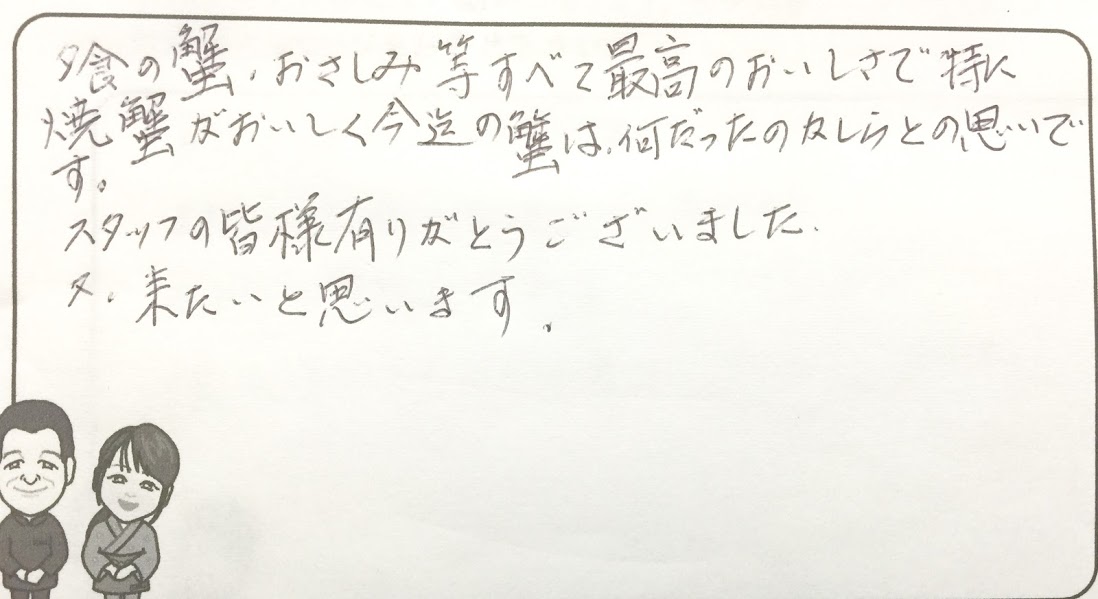 夕食の蟹、おさしみ等すべて最高のおいしさで特に
焼蟹がおいしく今迄の蟹は、何だったのかしらとの思いで
す。
スタッフの皆様有りがとうございました。
又、来たいと思います。